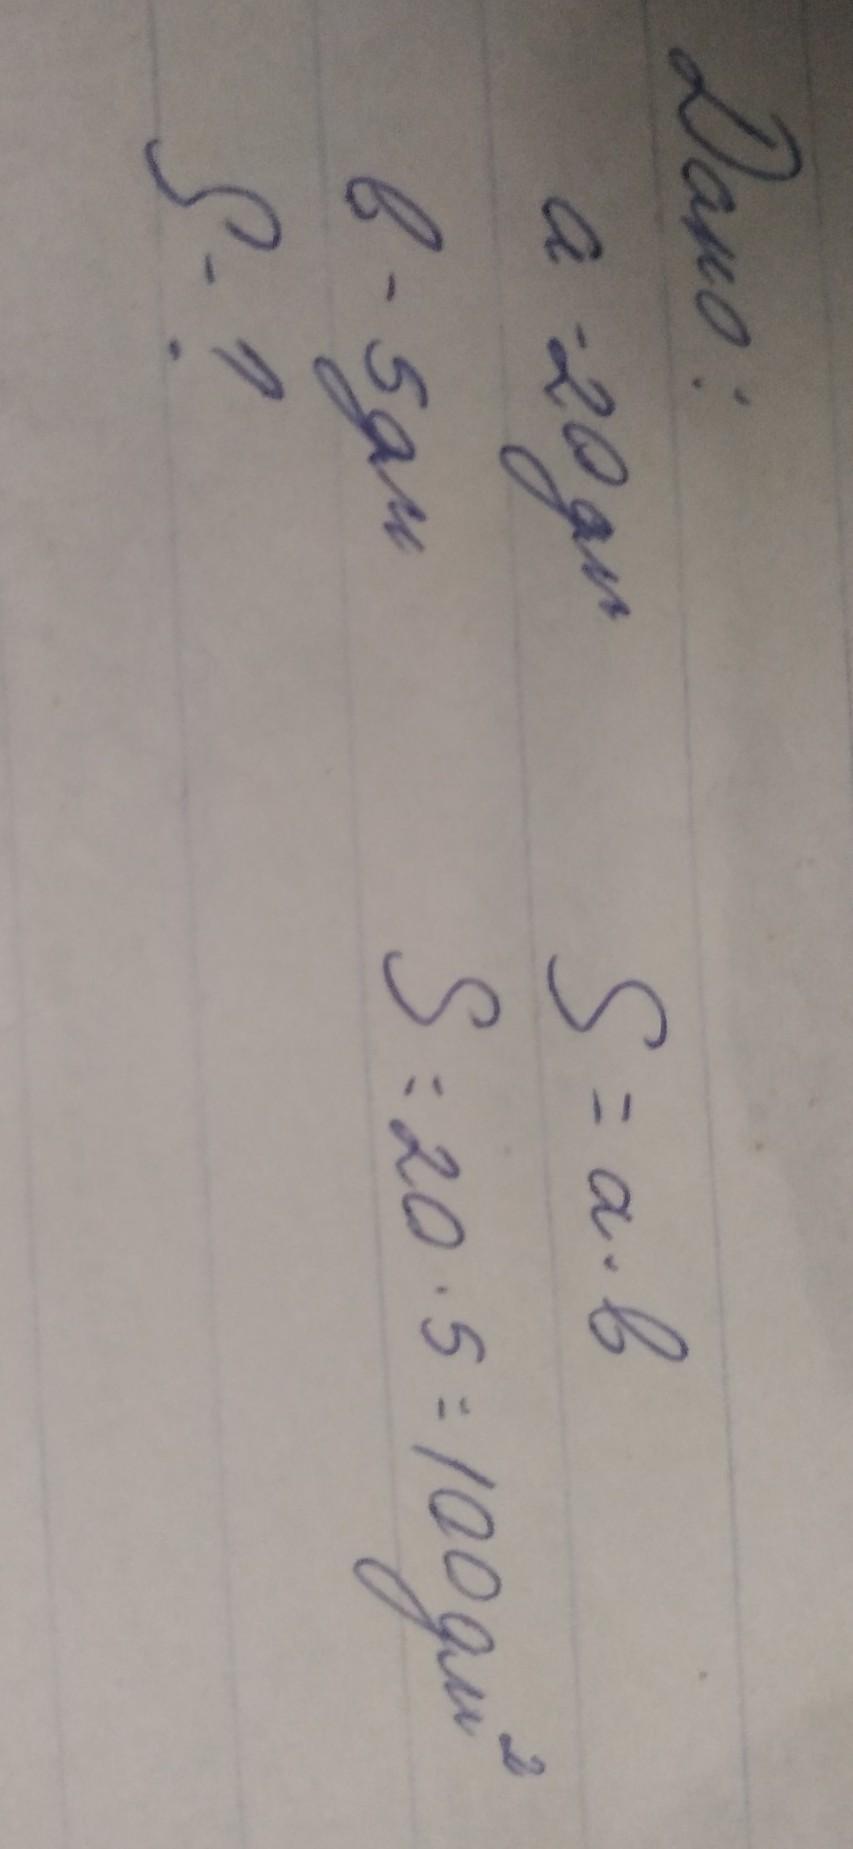 Дано:
a - 20 дм
в - 5 дм
S - ?
S = a · в
S = 20 · 5 = 100 дм²